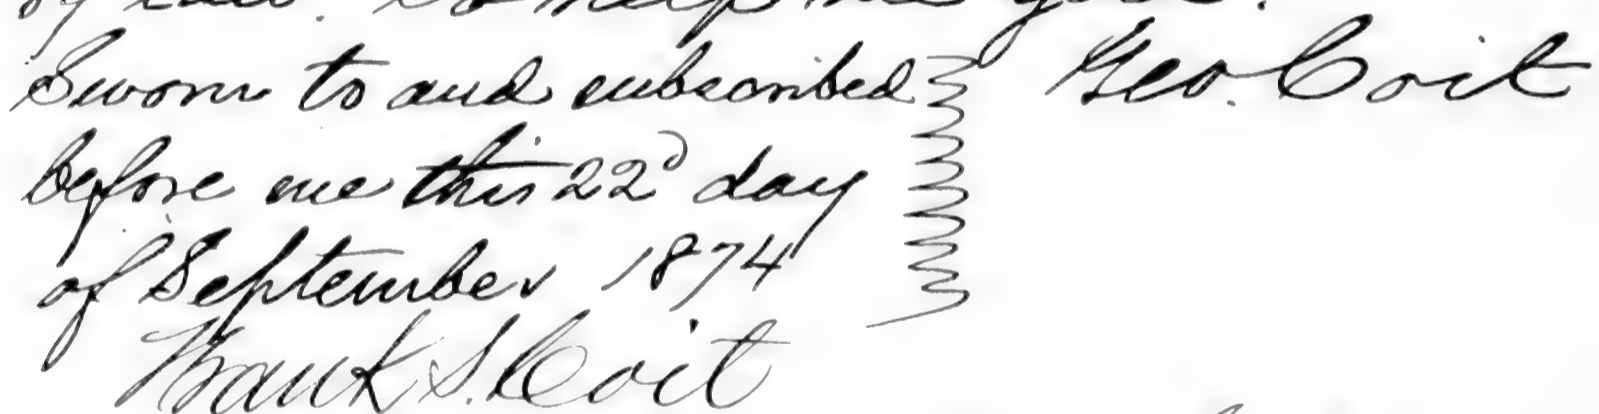 by law. So help me God.
Sworn to and subscribed
before me this 22d day
of September 1874
Frank S. Coit
Geo. Coit